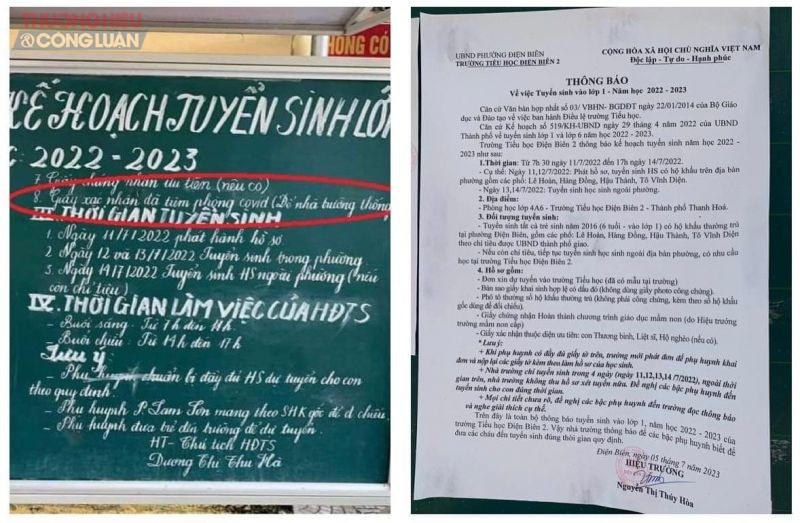 THƯƠNG HIỆU
& CÔNG LUẬN
HỒNG CÓ
KẾ HOẠCH TUYỂN SINH LỚ
C: 2022 - 2023
7. Giấy chứng nhận ưu tiên (nếu có)
8. Giấy xác nhận đã tiêm phòng covid (Để nhà trường thống
III. THỜI GIAN TUYỂN SINH
1. Ngày 11/7/2022 phát hành hồ sơ.
2. Ngày 12 và 13/7/2022 Tuyển sinh trong phường
3. Ngày 14/7/2022 Tuyển sinh HS ngoài phường (nếu
còn chỉ tiêu)
IV. THỜI GIAN LÀM VIỆC CỦA HĐTS
- Buổi sáng: Từ 7h đến 11h.
- Buổi chiều: Từ 14h đến 17h
Lưu ý:
- Phụ huynh chuẩn bị đầy đủ HS dự tuyển cho con
theo quy định.
- Phụ huynh P. Lam Sơn mang theo SHK gốc để đ chiếu.
- Phụ huynh đưa trẻ đến trường để dự tuyển.
HT - Chủ tịch HĐTS
Dương Thị Thu Hà
UBND PHƯỜNG ĐIỆN BIÊN
TRƯỜNG TIỂU HỌC ĐIỆN BIÊN 2
CỘNG HÒA XÃ HỘI CHỦ NGHĨA VIỆT NAM
Độc lập - Tự do - Hạnh phúc
THÔNG BÁO
Về việc Tuyển sinh vào lớp 1 - Năm học 2022 - 2023
Căn cứ Văn bản hợp nhất số 03/ VBHN- BGDĐT ngày 22/01/2014 của Bộ Giáo
dục và Đào tạo về việc ban hành Điều lệ trường Tiểu học.
Căn cứ Kế hoạch số 519/KH-UBND ngày 29 tháng 4 năm 2022 của UBND
Thành phố về tuyển sinh lớp 1 và lớp 6 năm học 2022 - 2023.
Trường Tiểu học Điện Biên 2 thông báo kế hoạch tuyển sinh năm học 2022 - 2023
như sau:
1.Thời gian: Từ 7h 30 ngày 11/7/2022 đến 17h ngày 14/7/2022.
- Cụ thể: Ngày 11,12/7/2022: Phát hồ sơ, tuyển sinh HS có hộ khẩu trên địa bàn
phường gồm các phố: Lê Hoàn, Hàng Đồng, Hậu Thành, Tô Vĩnh Diện.
- Ngày 13,14/7/2022: Tuyển sinh ngoài phường.
2. Địa điểm:
- Phòng học lớp 4A6 - Trường Tiểu học Điện Biên 2 - Thành phố Thanh Hoá.
3. Đối tượng tuyển sinh:
- Tuyển sinh tất cả trẻ sinh năm 2016 (6 tuổi - vào lớp 1) có hộ khẩu thường trú
tại phường Điện Biên, gồm các phố: Lê Hoàn, Hàng Đồng, Hậu Thành, Tô Vĩnh Diện
theo chỉ tiêu được UBND thành phố giao.
- Nếu còn chỉ tiêu, tiếp tục tuyển sinh học sinh ngoài địa bàn phường, có nhu cầu
học tại trường Tiểu học Điện Biên 2.
4. Hồ sơ gồm:
- Đơn xin dự tuyển vào trường Tiểu học (đã có mẫu tại trường)
- Bản sao giấy khai sinh hợp lệ có dấu đỏ (không dùng giấy photo công chứng).
- Phô tô thường số hộ khẩu thường trú (không phải công chứng, kèm theo sổ hộ khẩu
gốc dùng để đối chiếu).
- Giấy chứng nhận Hoàn thành chương trình giáo dục mầm non (do Hiệu trưởng
trường mầm non cấp)
- Giấy xác nhận thuộc diện ưu tiên: con Thương binh, Liệt sĩ, Hộ nghèo (nếu có).
* Lưu ý:
+ Khi phụ huynh có đầy đủ giấy tờ trên, trường mới phát đơn để phụ huynh khai
đơn và nộp lại các giấy tờ kèm theo làm hồ sơ của học sinh.
+ Nhà trường chỉ tuyển sinh trong 4 ngày (ngày 11,12,13,14 /7/2022), ngoài thời
gian trên, nhà trường không thu hồ sơ xét tuyển nữa. Đề nghị các bậc phụ huynh đến tuyển
sinh cho con đúng thời gian.
+ Mọi chi tiết chưa rõ, đề nghị các bậc phụ huynh đến trường đọc thông báo
và nghe giải thích cụ thể.
Trên đây là toàn bộ thông báo tuyển sinh vào lớp 1, năm học 2022 - 2023 của
trường Tiểu học Điện Biên 2. Vậy nhà trường thông báo để các bậc phụ huynh biết để
đưa các cháu đến tuyển sinh đúng thời gian quy định.
Điện Biên, ngày 05 tháng 7 năm 2023
HIỆU TRƯỞNG
Nguyễn Thị Thúy Hòa